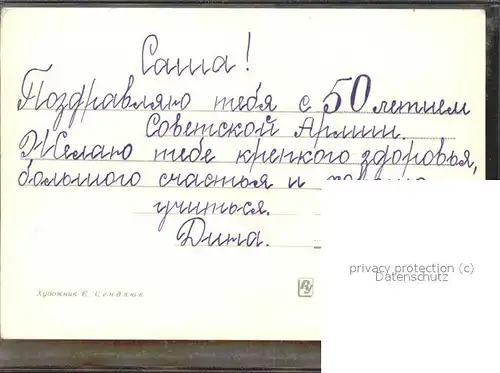 Саша!
Поздравляю тебя с 50 летием
Советской Армии.
Желаю тебе крепкого здоровья,
большого счастья и
учиться.
Дина.
privacy protection (c)
Datenschutz
Художник Е. Сендзюк